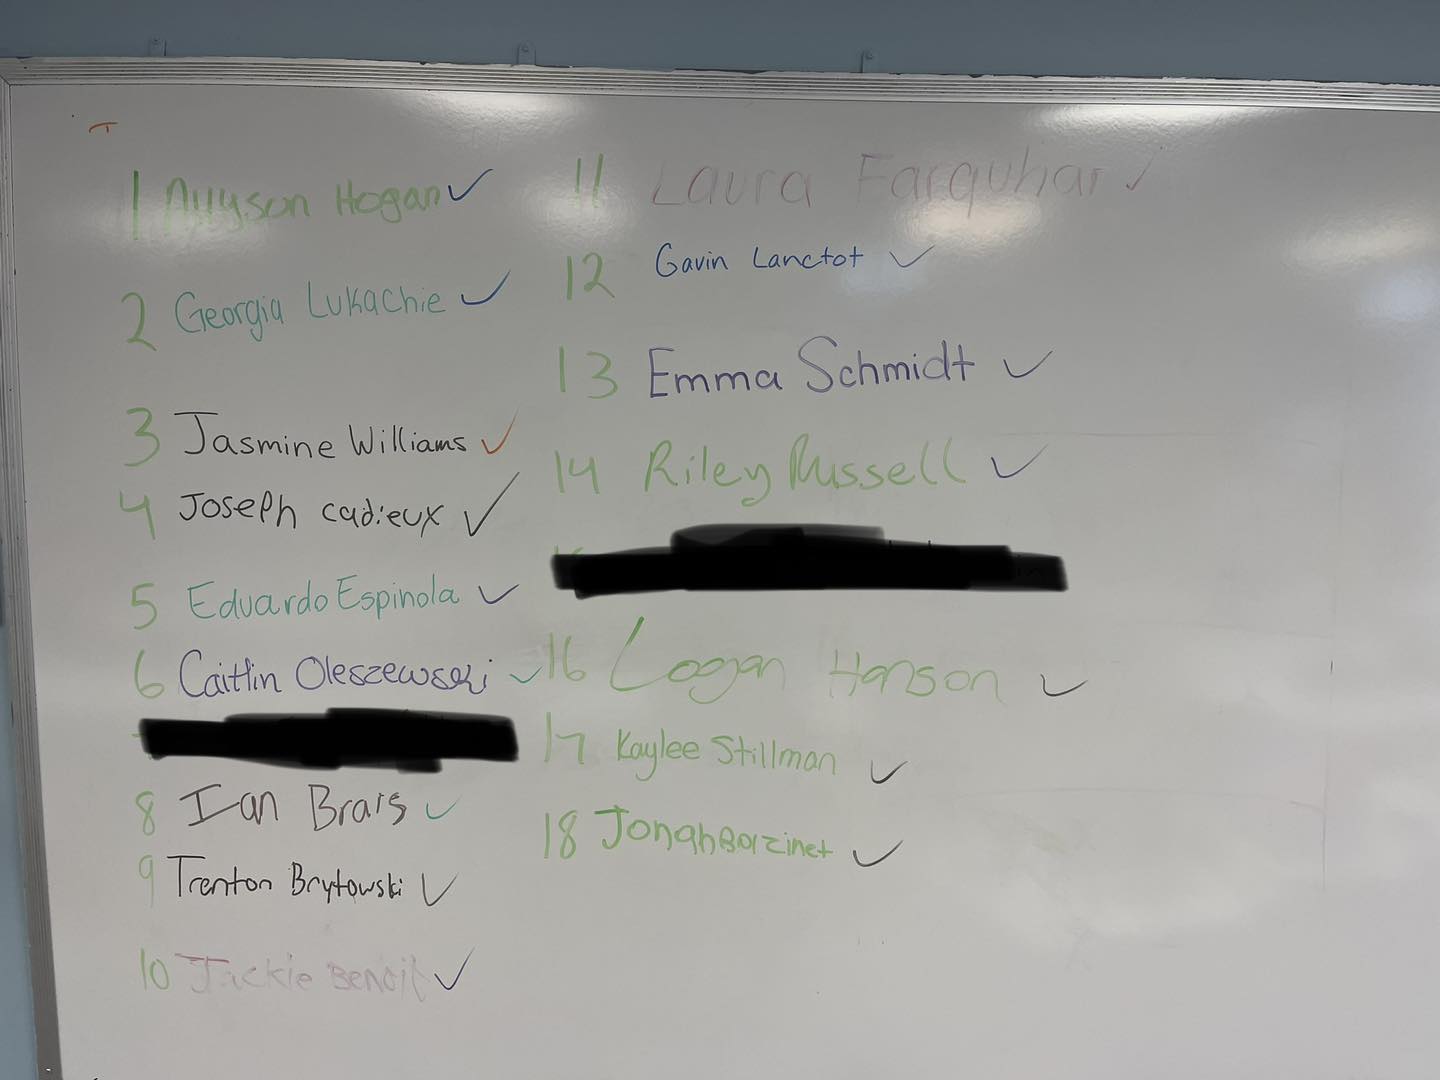 1 Allyson Hogan ✓
2 Georgia Lukachie ✓
3 Jasmine Williams ✓
4 Joseph cadieux ✓
5 Eduardo Espinola ✓
6 Caitlin Oleszewski ✓
8 Ian Brais ✓
9 Trenton Brytowski ✓
10 Jackie Benoit ✓
11 Laura Farquhar ✓
12 Gavin Lanctot ✓
13 Emma Schmidt ✓
14 Riley Russell ✓
16 Logan Hanson ✓
17 Kaylee Stillman ✓
18 Jonah Borzinet ✓